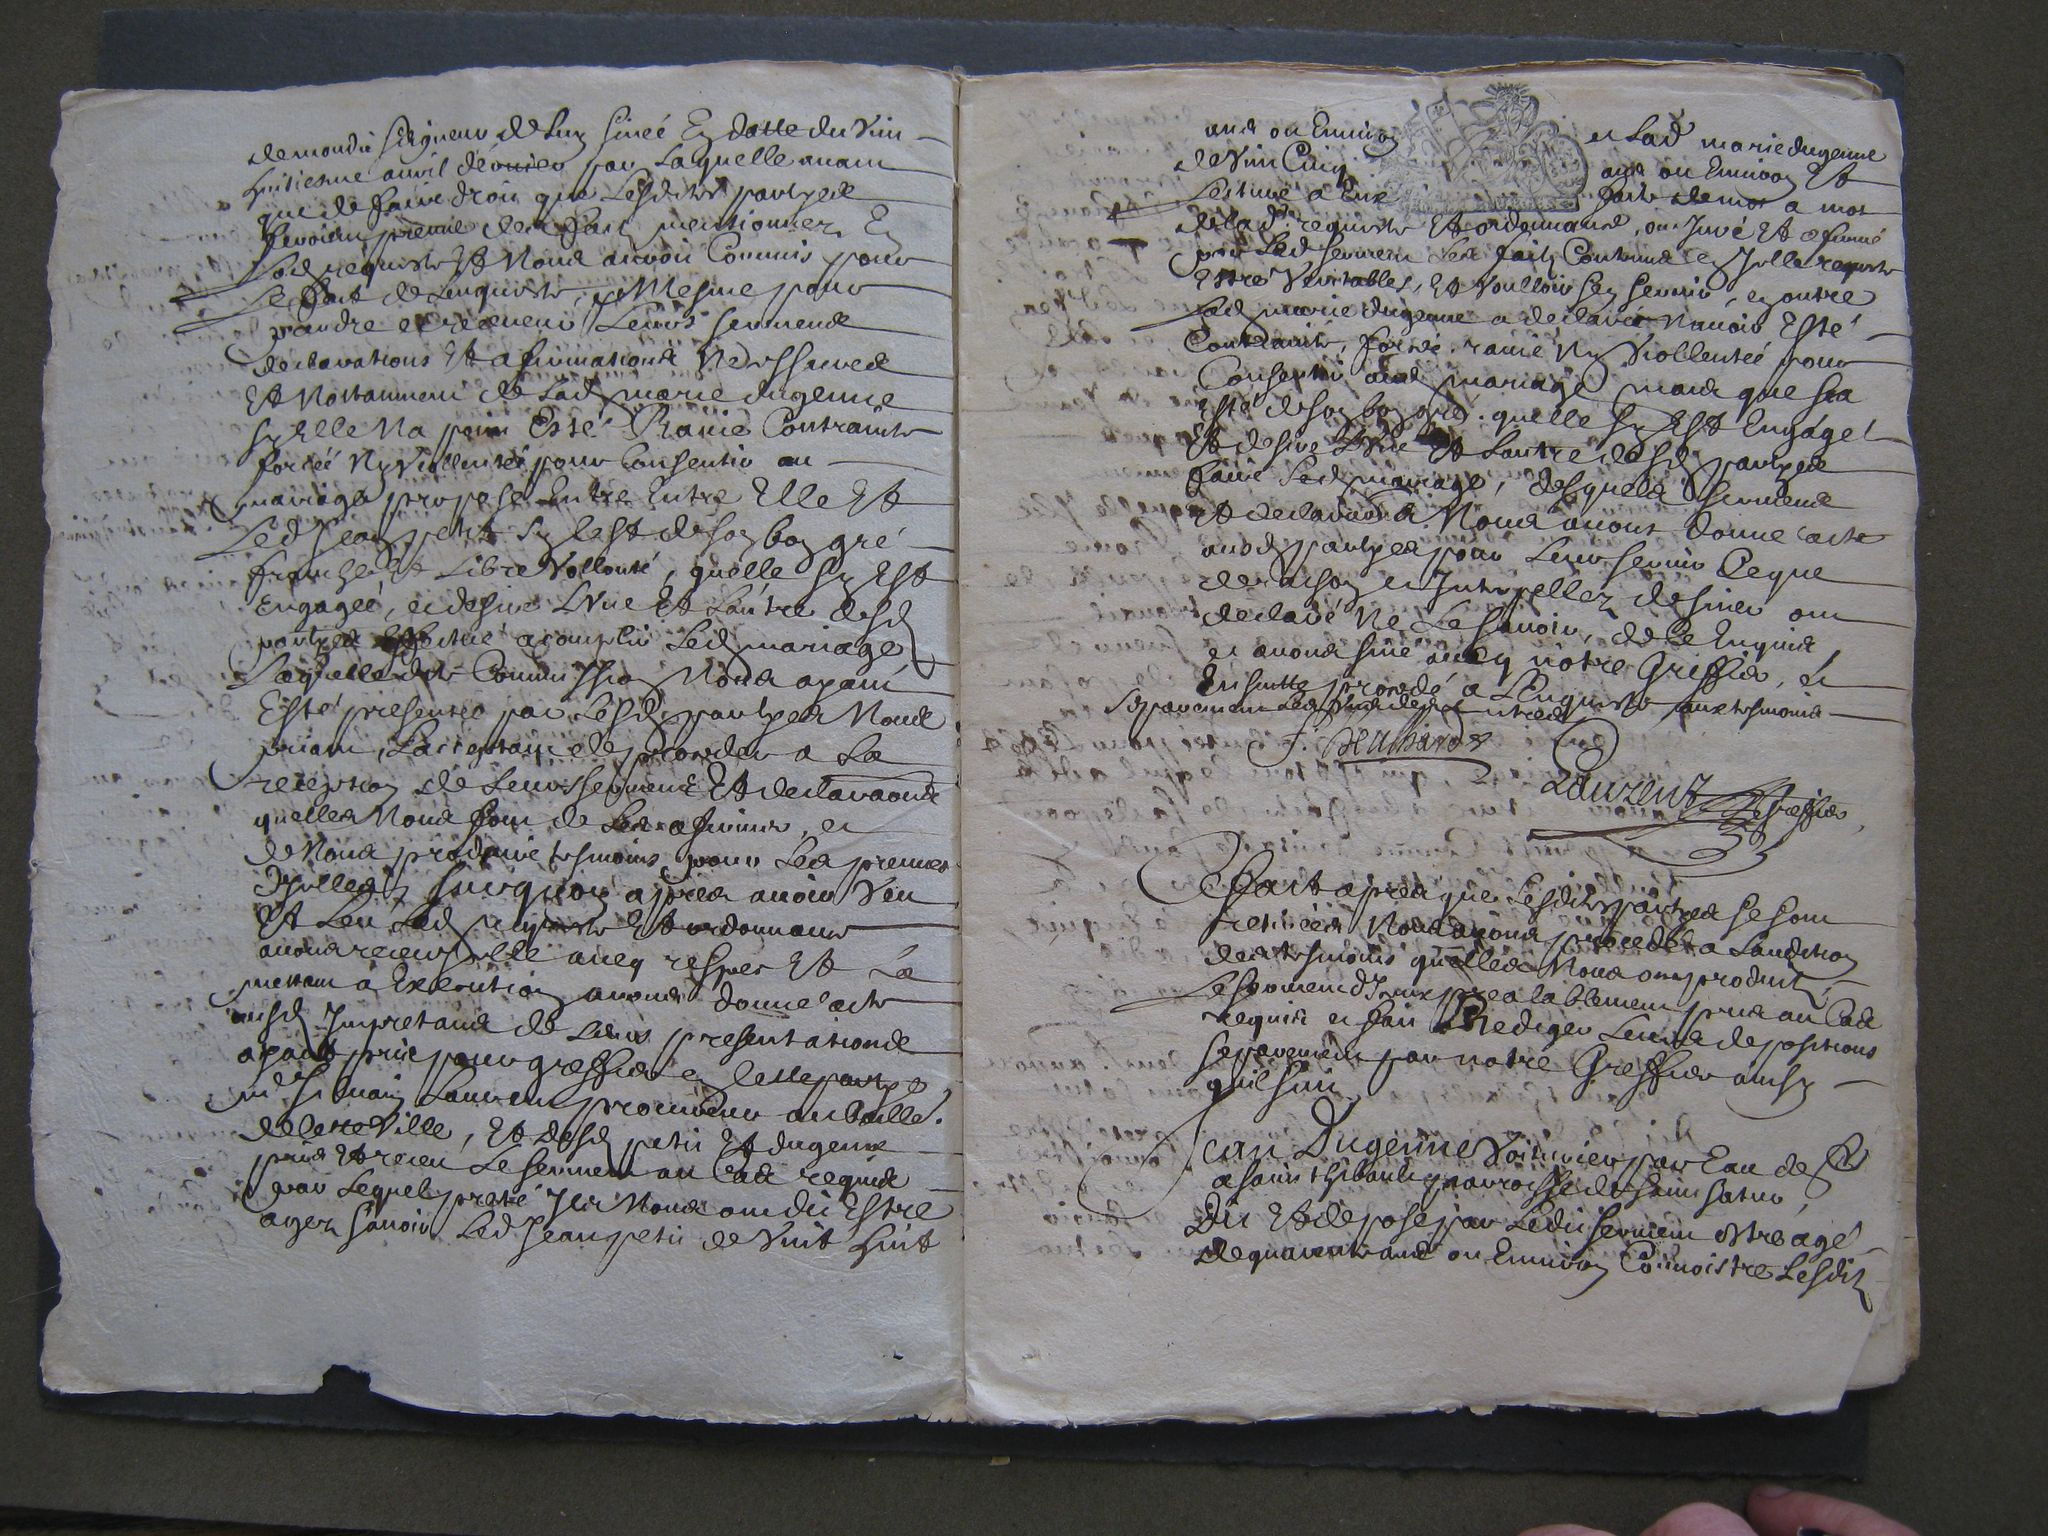 demondit seigneur de Luy sinée En datte du vin
huitiesme avril dernier par Laquelle avant
que de faire droit que Lesdites partyes
feroient preuve des faits mentionnez En
Lad requeste Et Nous auroit Commis pour
Le fait de Lenqueste, Mesme pour
prandre et recevoir Leurs serments
declarations Et afirmations Necessaires
Et Nottamment de Lad marie dugenne
sy Elle Na point Esté Ravie Contrainte
forcée Ny viollentée pour Consentir au
mariage proposé Entre Entre Elle Et
Led Jean petit sy lest de son bon gré
franche Et Libre vollonté, quelle sy Est
Engagée, et desire Lune Et Lautre desd
partyes acomplir Led mariage
Laquelle dite Commission Nous ayant
Esté presentée par Lesd partyes Nous
priant Lacceptant de proceder a La
reception de Leurs serments Et declaraons
quelles Nous font de Les afirmer, et
de Nous produire tesmoins pour Les preuves
Dicelles surquoy apres avoir veu
Et Leu Lad requeste Et ordonnance
avons receu Icelle avecq respec Et La
mettant a Execution avons donné acte
ausd Impretans de Leurs presentations
ayant pris pour greffier en cette partye
me Laurent procureur au baille
de cette ville, Et desd petit Et dugenne
pris Et receu Le serment au Cas requis
par Lequel presté Ils Nous ont dit Estre
agez savoir Led Jean petit de vint huit
ans ou Environ et Lad marie dugenne
de vint Cinq ans ou Environ Et
Lecture a Eux faite de mot a mot
de lad requeste Et ordonnance, ont Juré Et afirmé
par Led serment Les faits Contenus en Icelle requeste
Estre veritables, Et voulloir sen servir, en outre
Lad marie dugenne a declaré Navoir Esté
Contrainte, forcée ravie Ny viollentée pour
Consentir aud mariage mais que sa
Esté de son bon gré quelle sy Est Engagé
Et desire Lune Et Lautre desd partyes
faire Led mariage, desquels serments
Et declaraons Nous avons donné acte
ausd partyes pour Leur servir Ceque
de raison et Interpellez de siner ont
declaré Ne Le savoir, de Ce Enquis
et avons siné avecq notre Greffier, et
Ensuitte procedé a Lenqueste aux tesmoins
separement Les uns des autres
Laurent Greffier
Et apres que Lesdites partyes se sont
retirées Nous avons procedé a Laudition
des tesmoins quelles Nous ont produit
Le serment dIceux prealablement pris au Cas
requis et fait Rediger Leurs depositions
separement par notre Greffier ainsy
quil suit
Jean Dugenne voiturier par Eau de
a saint thibault parroisse de saint satur
Dit Et depose par Ledit serment Estre agé
de quarente ans ou Environ Connoistre Lesdits